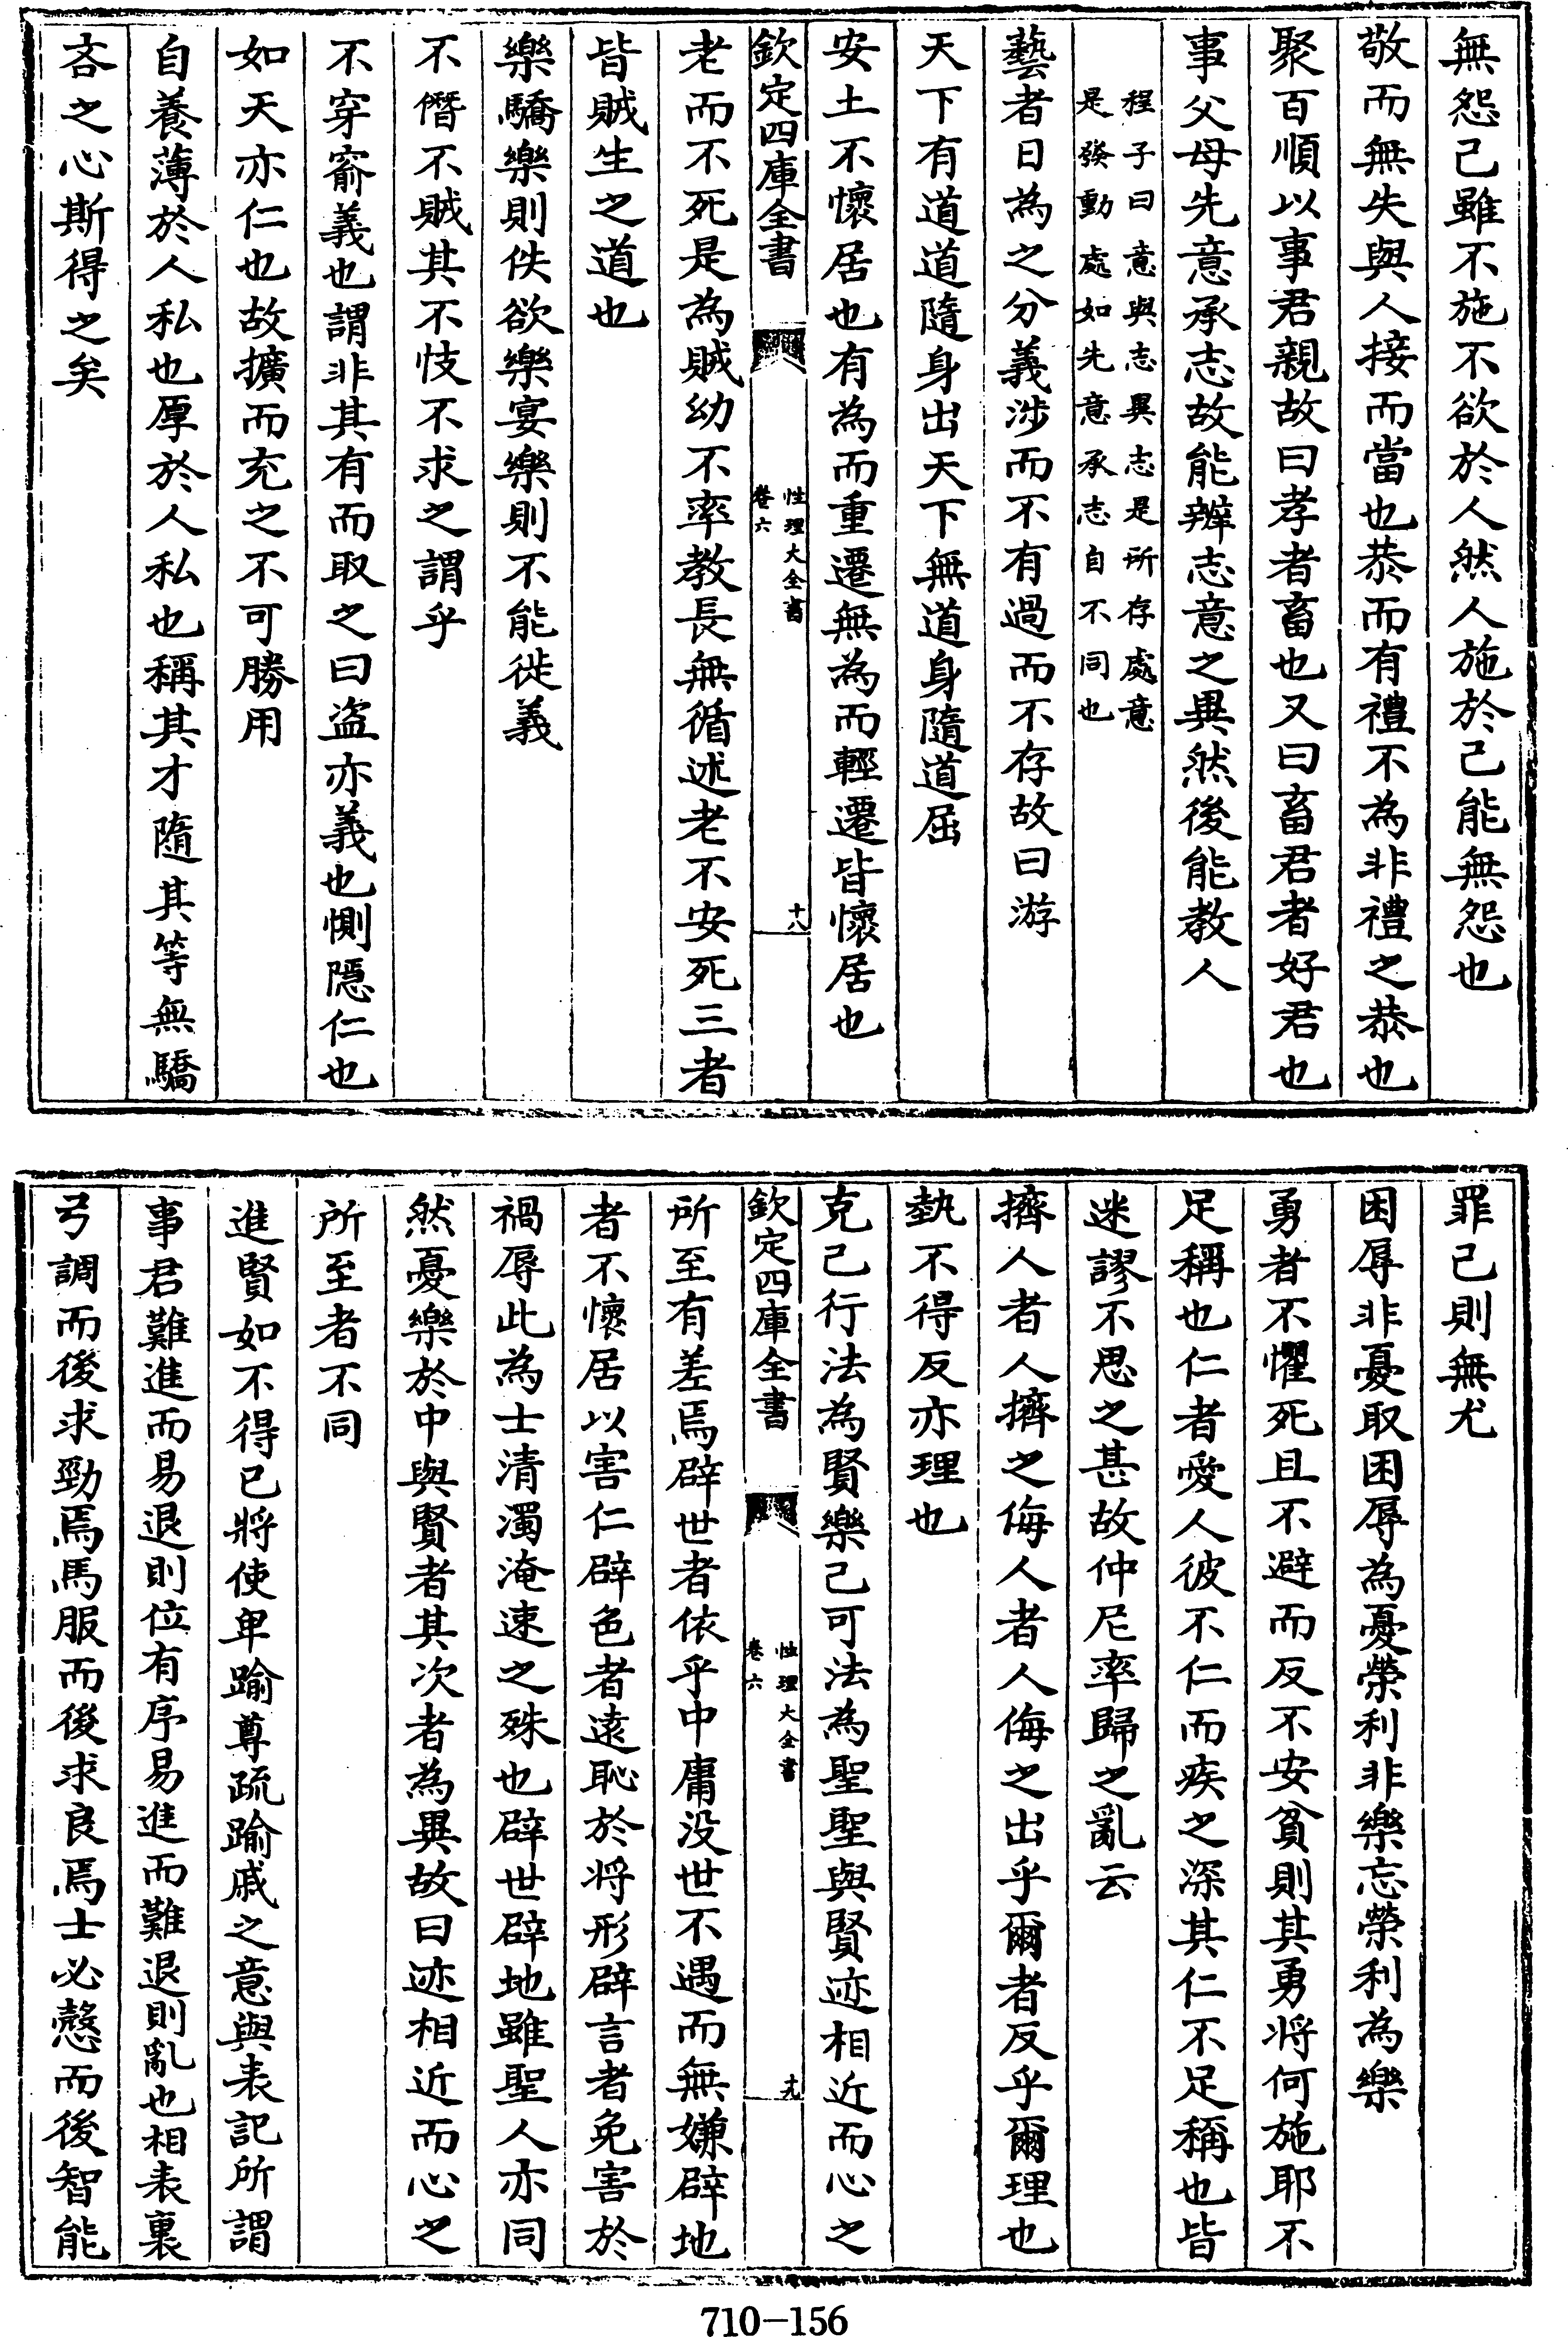 無怨己雖不施不欲於人然人施於己能無怨也
敬而無失與人接而當也恭而有禮不為非禮之恭也
聚百順以事君親故曰孝者畜也又曰畜君者好君也
事父母先意承志故能辨志意之異然後能教人
程子曰意與志異志是所存處意
是發動處如先意承志自不同也
藝者日為之分義涉而不有過而不存故曰游
天下有道道隨身出天下無道身隨道屈
安土不懷居也有為而重遷無為而輕遷皆懷居也
欽定四庫全書
性理大全書
卷六
十八
老而不死是為賊幼不率教長無循述老不安死三者
皆賊生之道也
樂驕樂則佚欲樂宴樂則不能徙義
不僭不賊其不忮不求之謂乎
不穿窬義也謂非其有而取之曰盜亦義也惻隱仁也
如天亦仁也故擴而充之不可勝用
自養薄於人私也厚於人私也稱其才隨其等無驕
吝之心斯得之矣
罪己則無尤
困辱非憂取困辱為憂榮利非樂忘榮利為樂
勇者不懼死且不避而反不安貧則其勇將何施耶不
足稱也仁者愛人彼不仁而疾之深其仁不足稱也皆
迷謬不思之甚故仲尼率歸之亂云
擠人者人擠之侮人者人侮之出乎爾者反乎爾理也
埶不得反亦理也
克己行法為賢樂己可法為聖聖與賢迹相近而心之
欽定四庫全書
性理大全書
卷六
十九
所至有差焉辟世者依乎中庸没世不遇而無嫌辟地
者不懷居以害仁辟色者遠恥於將形辟言者免害於
禍辱此為士清濁淹速之殊也辟世辟地雖聖人亦同
然憂樂於中與賢者其次者為異故曰迹相近而心之
所至者不同
進賢如不得已將使卑踰尊疏踰戚之意與表記所謂
事君難進而易退則位有序易進而難退則亂也相表裏
弓調而後求勁焉馬服而後求良焉士必慤而後智能
710-156